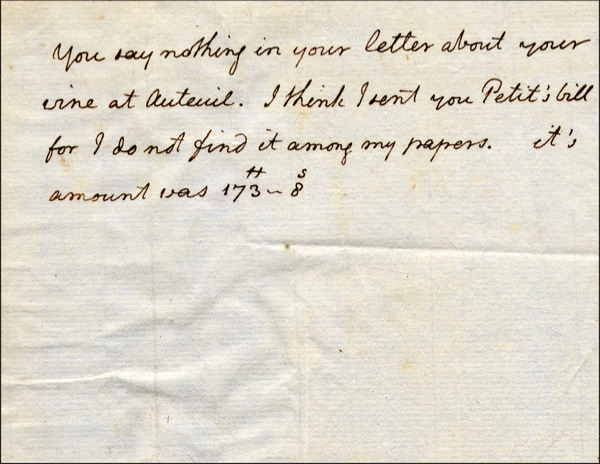 You say nothing in your letter about your
wine at Auteuil. I think I sent you Petit's bill
for I do not find it among my papers. it's
amount was 173ᵗᵗ–8ˢ